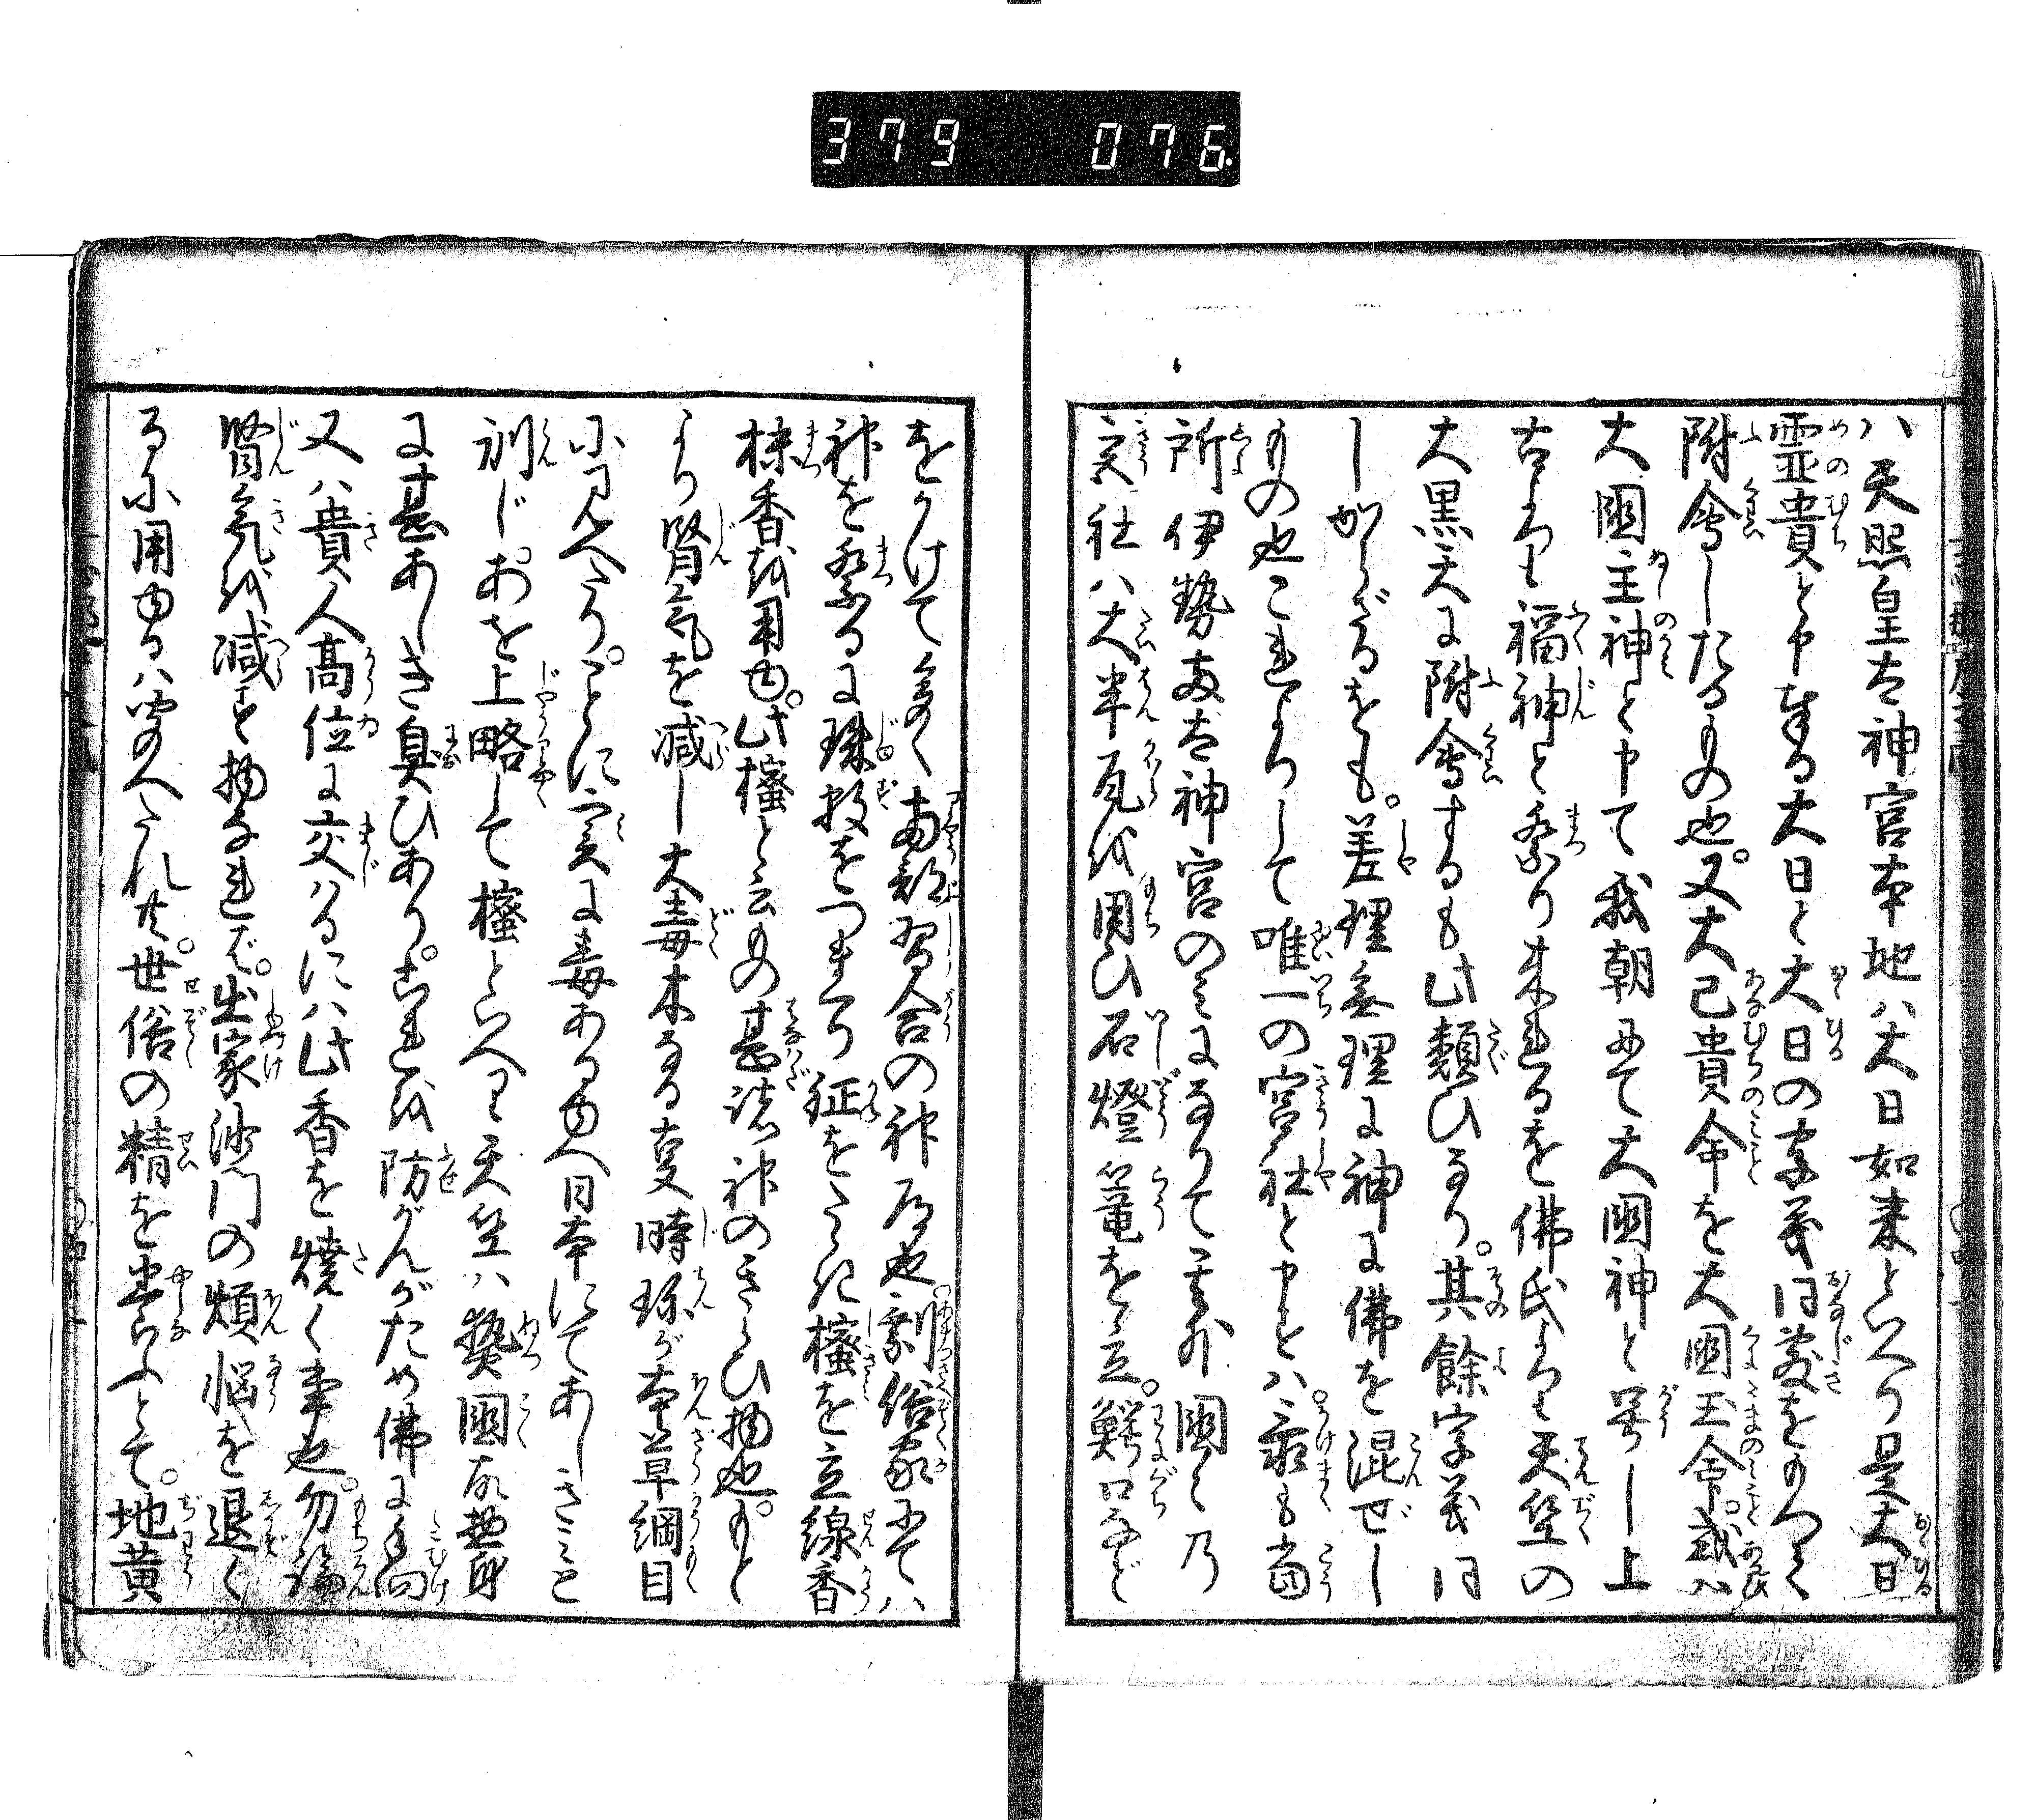 379 076
ハ天照皇太神宮本地ハ大日如来といへり是大日
霊貴と申奉る大日と大日の字義同義をもつく
附會したるもの也。又大己貴命を大國玉命。或ハ
大國主神と申て我朝にて大國神と号し上
古より福神と祭り来れるを佛氏より天竺の
大黒天に附會するも此類ひなり。其餘字義同
しからざるをも。差理無理に神に佛を混ぜし
もの也これよりして唯一の宮社と申ハ。最も當
所伊勢両太神宮のみになりて其外國々乃
宮社ハ大半瓦を用ひ石燈籠を立。鰐口など
をかけて多く両部習合の神道也。剃俗家にてハ
神を祭るに珠数をつまぐり鉦をたゝき樒を立線香
抹香を用ゆ。此樒と云もの甚諸神のきらひ物也。もと
より腎気を減し大毒木なる㕝時珍が本草綱目
に見へたり。ことに実に毒あるゆへ日本にてあしきみと
訓じ。あを上略して樒といへり天竺ハ熱國故熱身
に甚あしき臭ひあり。これを防がんがため佛に手向
又ハ貴人高位に交ハるにハ此香を焼く事也。勿論
腎気を減ずる物なれば。出家沙門の煩悩を退く
るに用ゆるハ聞へたれ共。世俗の精を養ふとて。地黄